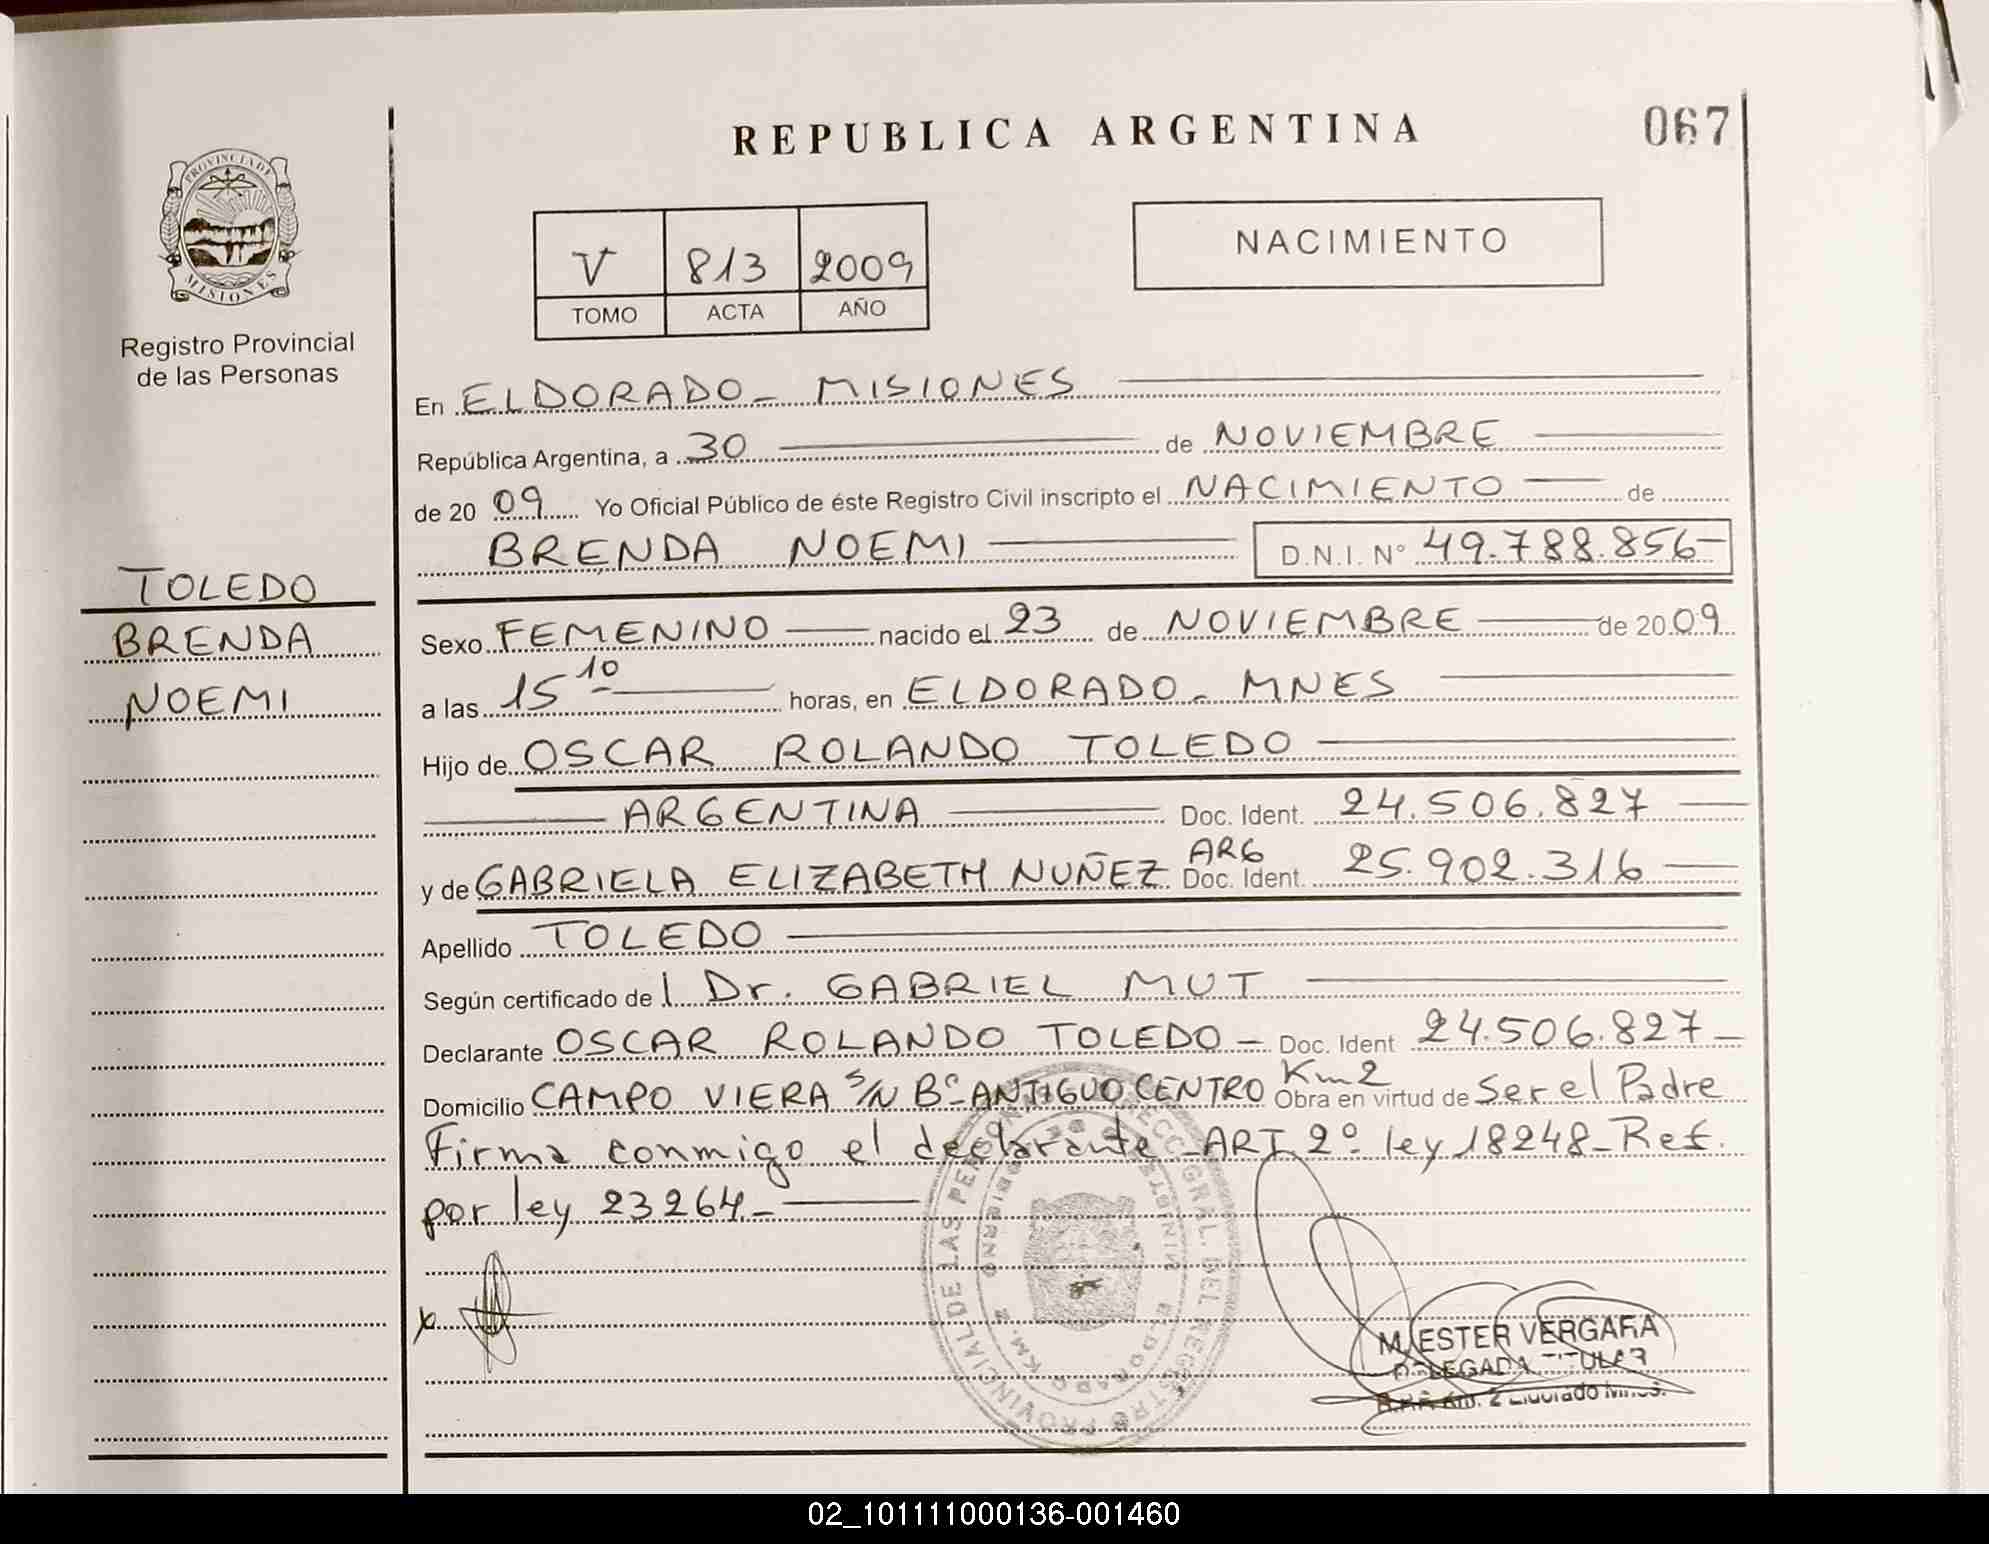 REPUBLICA ARGENTINA
067
PROVINCIA DE
MISIONES
Registro Provincial
de las Personas
V 813 2009
TOMO ACTA AÑO
NACIMIENTO
En ELDORADO - MISIONES
República Argentina, a 30 de NOVIEMBRE
de 2009 Yo Oficial Público de éste Registro Civil inscripto el NACIMIENTO de
BRENDA NOEMI D.N.I. N° 49.788.856-
TOLEDO
BRENDA
NOEMI
Sexo FEMENINO nacido el 23 de NOVIEMBRE de 2009
a las 15 10 horas, en ELDORADO - MNES
Hijo de OSCAR ROLANDO TOLEDO
ARGENTINA Doc. Ident. 24.506.827
y de GABRIELA ELIZABETH NUÑEZ ARG Doc. Ident. 25.902.316
Apellido TOLEDO
Según certificado de Dr. GABRIEL MUT
Declarante OSCAR ROLANDO TOLEDO - Doc. Ident 24.506.827-
Domicilio CAMPO VIERA S/N B° ANTIGUO CENTRO Km2 Obra en virtud de Ser el Padre
Firma conmigo el declarante - ART 2° ley 18248 - Ref.
por ley 23264 -
x
DIRECC. GRAL. DEL REGISTRO PROVINCIAL DE LAS PERSONAS
ELDORADO KM. 2
M. ESTER VERGARA
DELEGADA TITULAR
Km. 2 Eldorado Mnes.
02_101111000136-001460